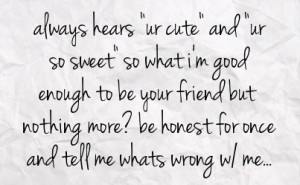 always hears "ur cute" and "ur
so sweet" so what i'm good
enough to be your friend but
nothing more? be honest for once
and tell me whats wrong w/ me...